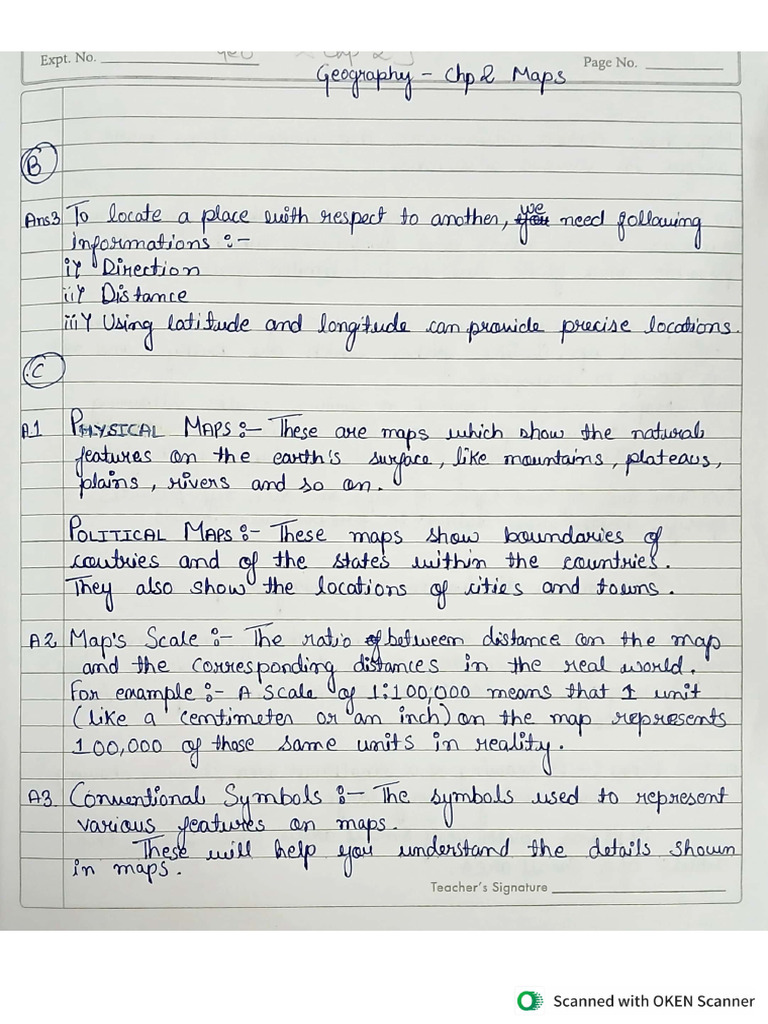 Expt. No. Geo Chp 2
Page No.
Geography - Chp 2 Maps
B
Ans3 To locate a place with respect to another, we need following
informations :-
i) Direction
ii) Distance
iii) Using latitude and longitude can provide precise locations.
C
A.1 PHYSICAL MAPS :- These are maps which show the natural
features on the earth's surface, like mountains, plateaus,
plains, rivers and so on.
POLITICAL MAPS :- These maps show boundaries of
coutries and of the states within the countries.
They also show the locations of cities and towns.
A2 Map's Scale :- The ratio between distance on the map
and the corresponding distances in the real world.
For example :- A Scale of 1:100,000 means that 1 unit
(like a centimeter or an inch) on the map represents
100,000 of those same units in reality.
A3. Conventional Symbols :- The symbols used to represent
various features on maps.
These will help you understand the details shown
in maps.
Teacher's Signature
Scanned with OKEN Scanner